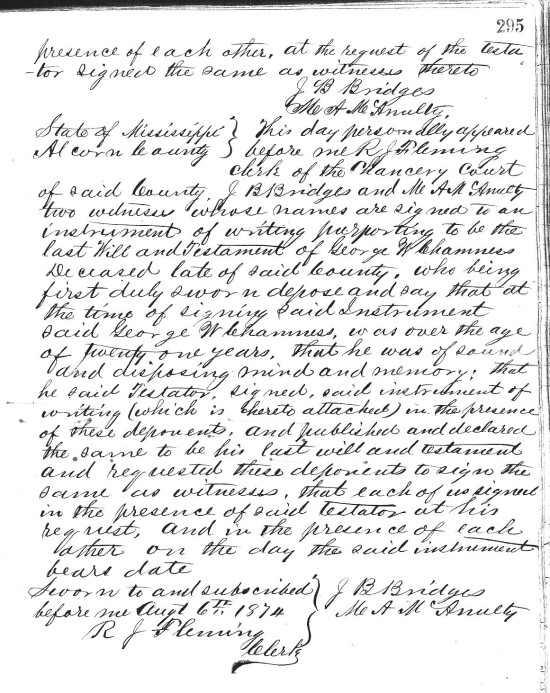 295
presence of each other, at the request of the testa-
-tor signed the same as witnesses thereto
J B Bridges
Mc A McAnulty.
State of Mississippi } This day personally appeared
Alcorn County } before me R J Fleming
clerk of the Chancery Court
of said County, J B Bridges and Mc A McAnulty
two witnesses whose names are signed to an
instrument of writing purporting to be the
last Will and Testament of George W Chamness
Deceased late of said County, who being
first duly sworn depose and say that at
the time of signing said Instrument
said George W Chamness, was over the age
of twenty one years, that he was of sound
and disposing mind and memory; that
he said Testator, signed, said instrument of
writing (which is hereto attached) in the presence
of these deponents, and published and declared
the same to be his last will and testament
and requested these deponents to sign the
same as witnesses, that each of us signed
in the presence of said testator at his
request, and in the presence of each
other on the day the said instrument
bears date
Sworn to and subscribed } J B Bridges
before me Augt 6th, 1874 } Mc A McAnulty
R J Fleming
Clerk